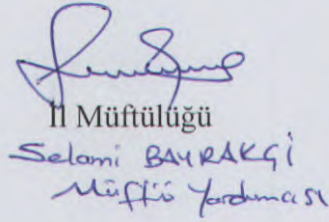 İl Müftülüğü
Selami BAYRAKÇİ
Müftü Yardımcısı